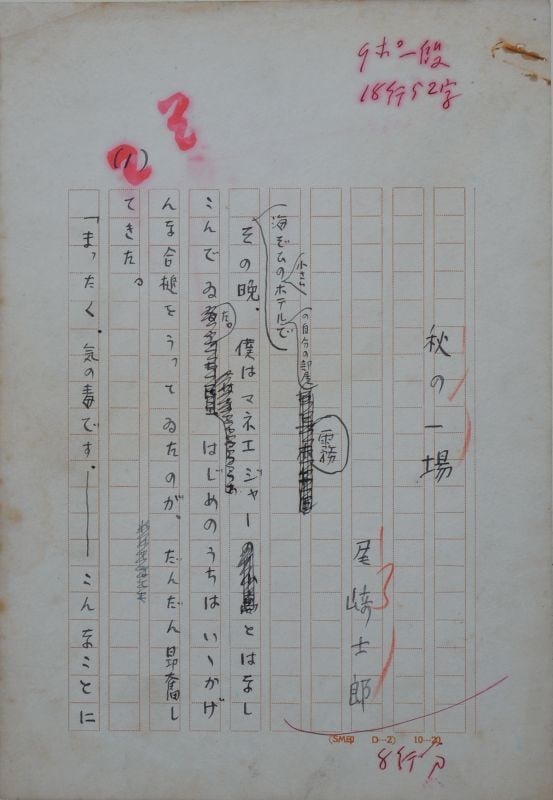 9ポ一段
18行52字
秋の一場
尾崎士郎
霧
の自分の部屋
小さい
海ぞひのホテルで
その晩、僕はマネエジャーとはなし
こんでゐた。はじめのうちはいゝかげ
んな合槌をうつてゐたのが、だんだん昂奮し
てきた。
「まつたく、気の毒です。――こんなことに
(1)
(SM印 D-2) 10-20
8行分